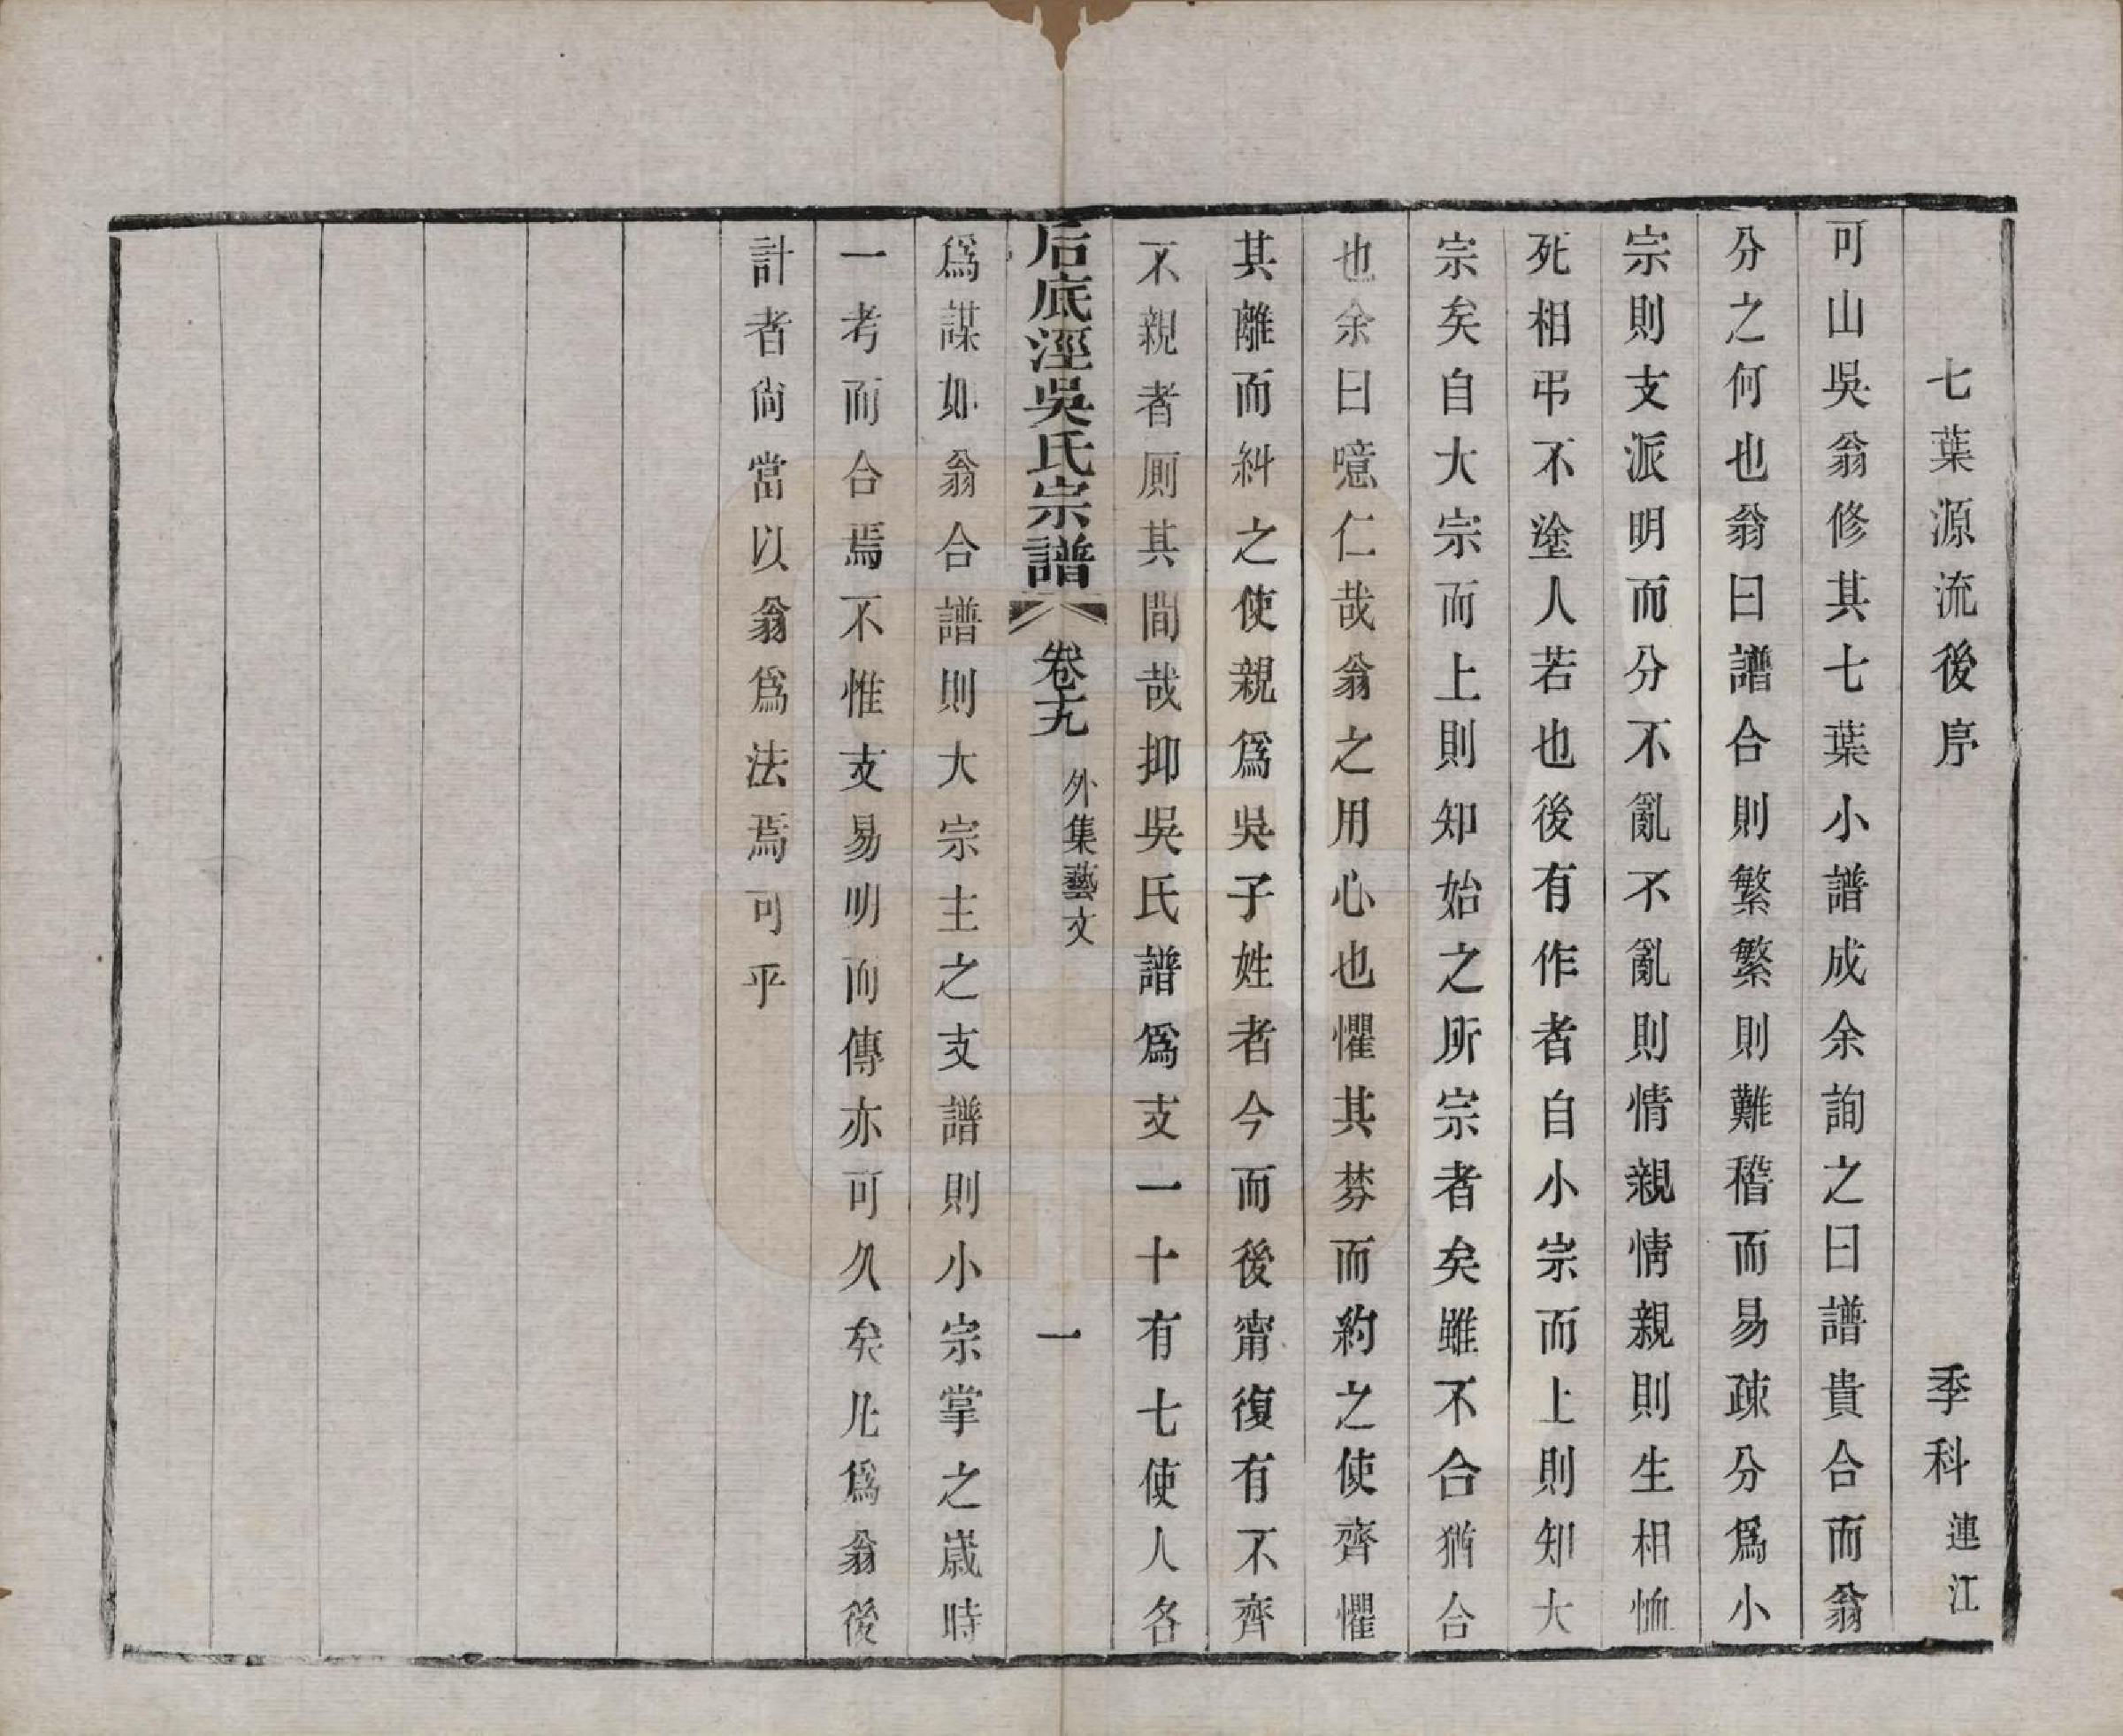 七葉源流後序　季科連江
可山吳翁修其七葉小譜成余詢之曰譜貴合而翁
分之何也翁曰譜合則繁繁則難稽而易疎分爲小
宗則支派明而分不亂不亂則情親情親則生相恤
死相弔不塗人若也後有作者自小宗而上則知大
宗矣自大宗而上則知始之所宗者矣雖不合猶合
也余曰噫仁哉翁之用心也懼其棼而約之使齊懼
其離而糾之使親爲吳子姓者今而後甯復有不齊
不親者厠其間哉抑吳氏譜爲支一十有七使人各
后底涇吳氏宗譜　卷十九　外集藝文　一
爲謀如翁合譜則大宗主之支譜則小宗掌之歲時
一考而合焉不惟支易明而傳亦可久矣凡爲翁後
計者尙當以翁爲法焉可乎